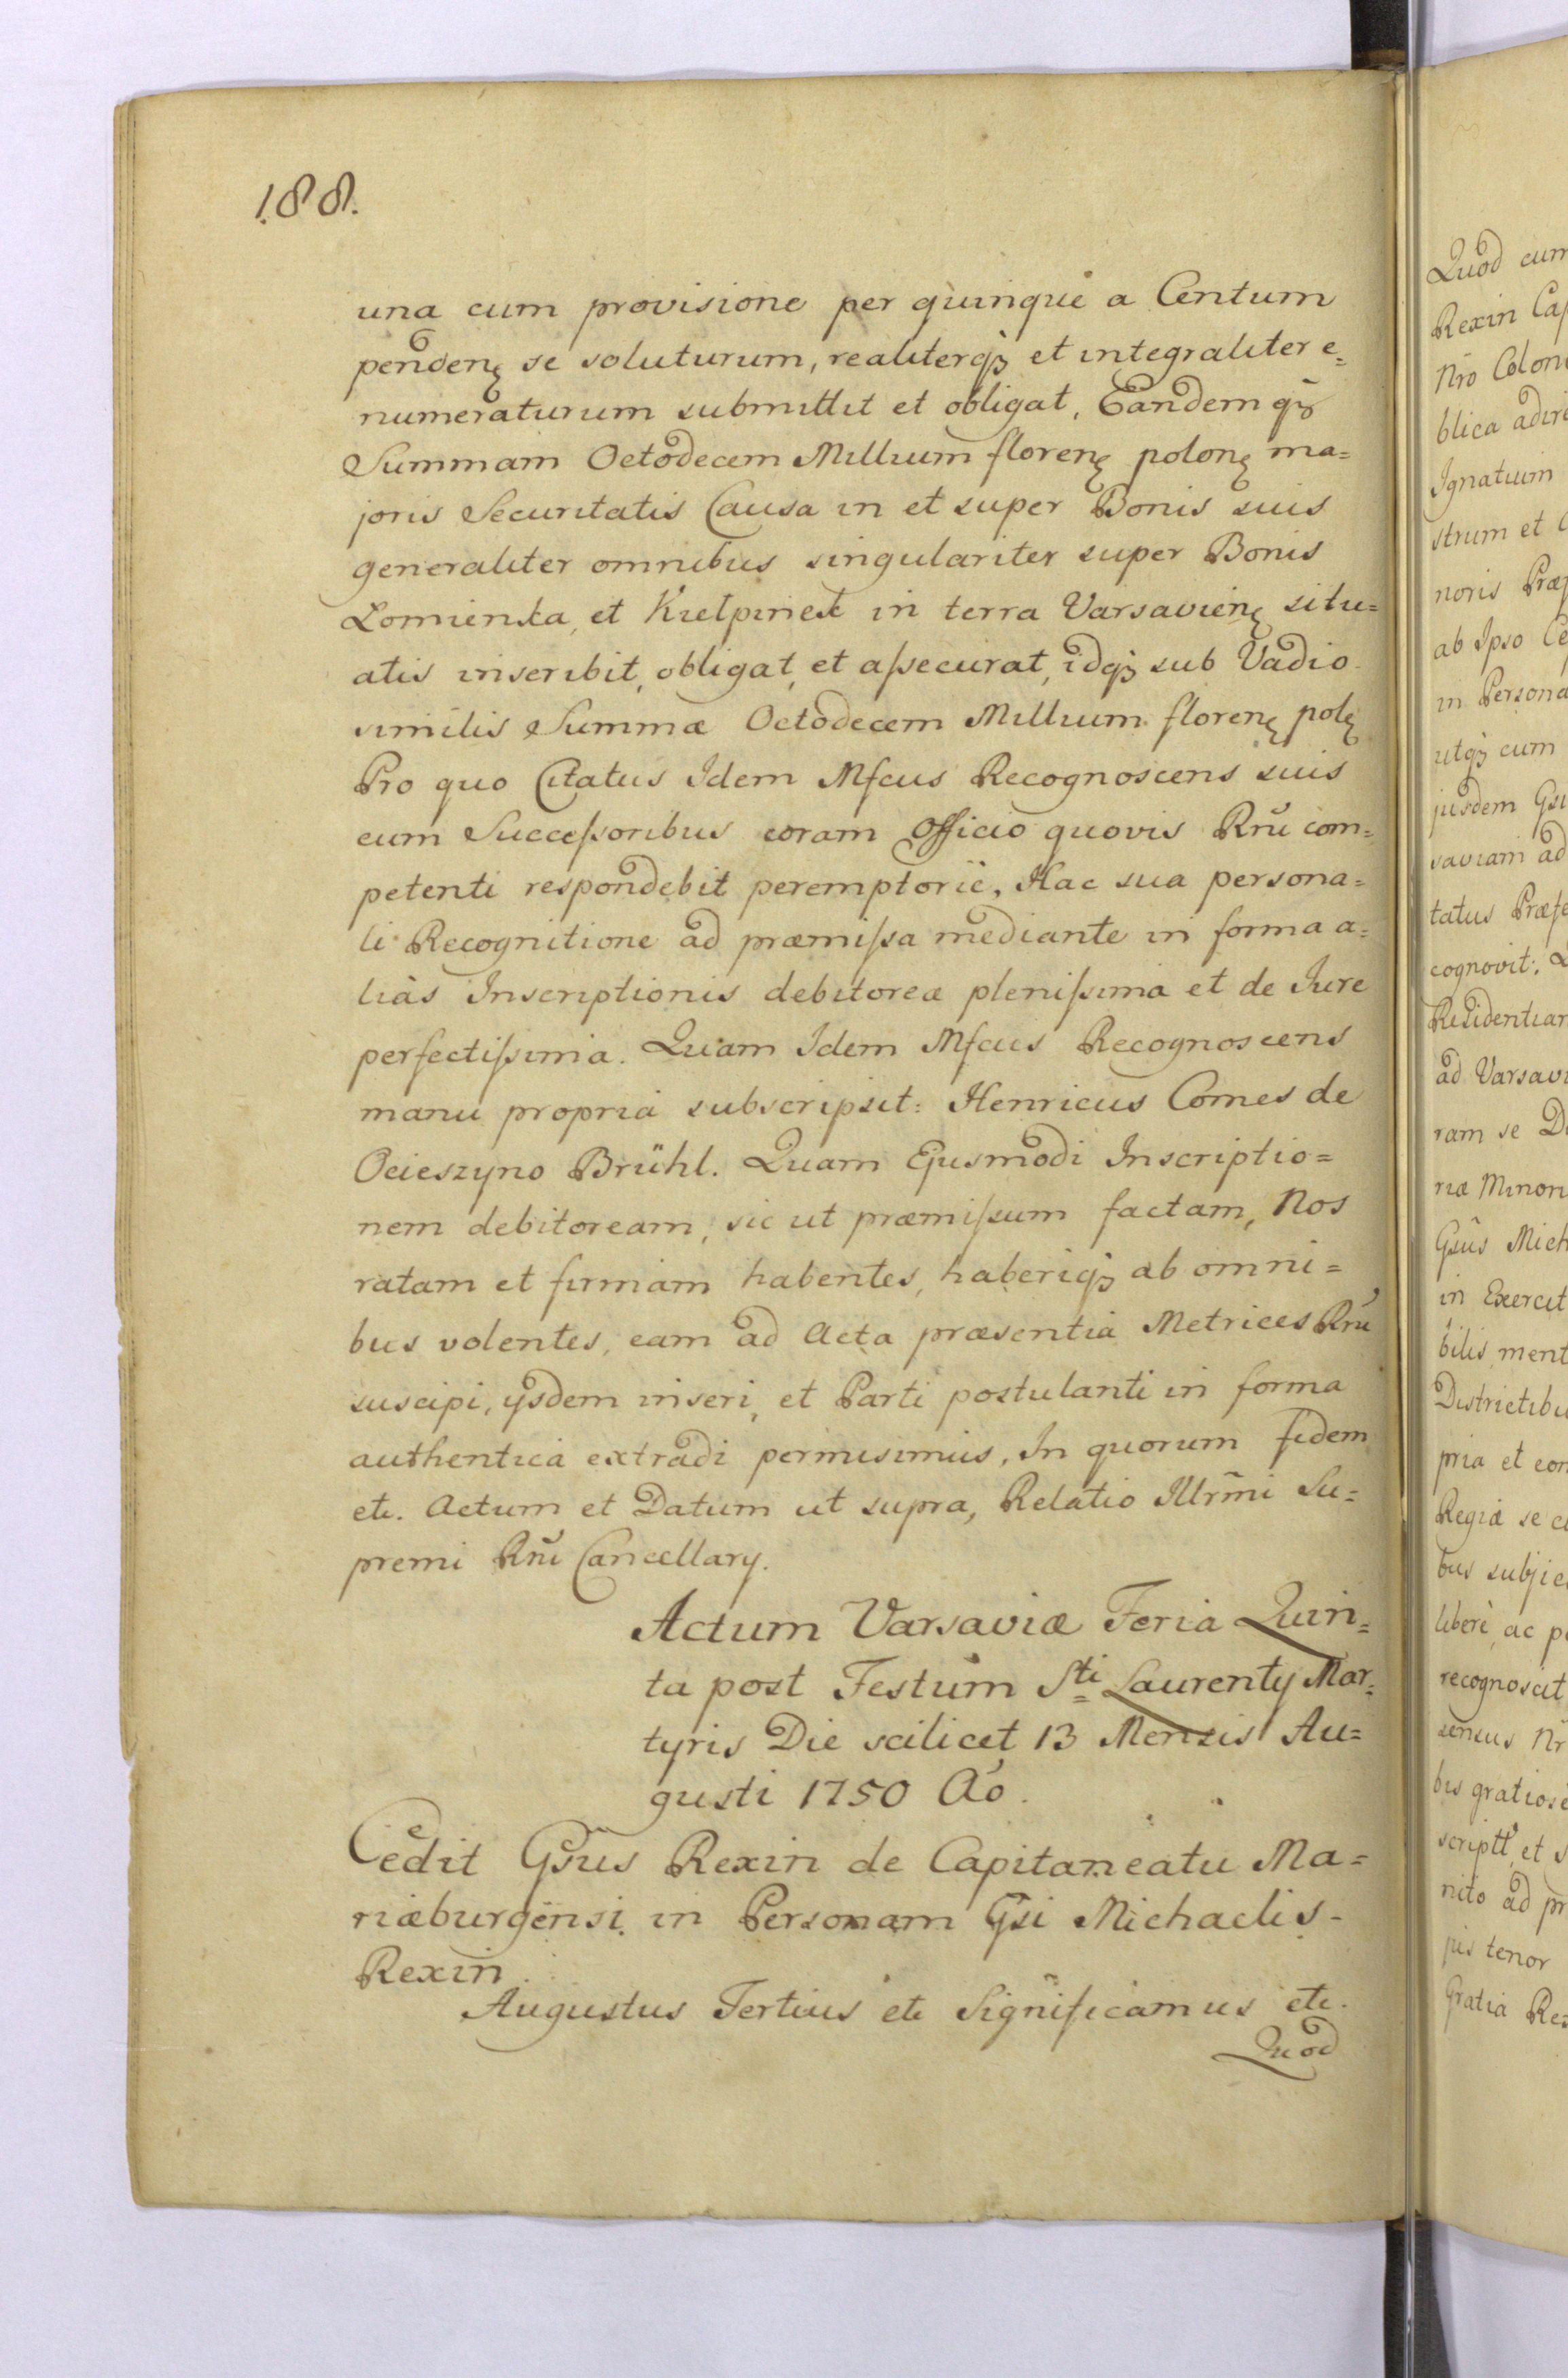 188.
una cum provisione per quinque a Centum
pendenę se soluturum, realiterqȝ et integraliter e=
numeraturum submittit et obligat, Eandemqȝ
Summam Octodecem Millium florenę polonę ma=
joris Securitatis Causa in et super Bonis suis
generaliter omnibus singulariter super Bonis
Łomienka, et Kiełpinek in terra Varsavienę situ=
atis inscribit, obligat, et aſsecurat, idqȝ sub Vadio
similis Summæ Octodecem Millium florenę polę
Pro quo Citatus Idem Mfcus Recognoscens suis
cum Succeſsoribus coram Officio quovis Rñi com=
petenti respondebit peremptorie, Hac sua persona=
li Recognitione ad præmiſsa mediante in forma a=
liàs Inscriptionis debitoreæ pleniſsima et de Jure
perfectiſsima. Quam Idem Mfcus Recognoscens
manu propria subscripsit: Henricus Comes de
Ocieszyno Brühl. Quam Ejusmodi Inscriptio=
nem debitoream, sic ut præmiſsum factam, Nos
ratam et firmam habentes, haberiqȝ ab omni=
bus volentes, eam ad Acta præsentia Metrices Rñi
suscipi, ysdem inseri, et Parti postulanti in forma
authentica extradi permisimus, In quorum fidem
etc. Actum et Datum ut supra, Relatio Illr̃mi Su=
premi Rñi Cancellary.
Actum Varsaviæ Feria Quin=
ta post Festum Sti Laurenty Mar=
tyris Die scilicet 13 Mensis Au=
gusti 1750 Aō.
Cedit Gsus Rexin de Capitaneatu Ma=
riæburgensi in Personam Gsi Michaelis
Rexin.
Augustus Tertius etc Significamus etc.
Quod
Quod cum
Rexin Cap
Nrõ Colon
blica adire
Ignatium
strum et
noris Præf
ab Ipso Ce
in Persona
utqȝ cum
jusdem Gsi
saviam ad
tatus Præfe
cognovit:
Residentiam
ad Varsavi
ram se D
riæ Minori
Gsus Mich
in Exercit
bilis, ment
Districtibu
pria et con
Regiæ se
bus subjic
liberè, ac p
recognoscit
bus gratiose
scriptt, et s
nito ad pr
jus tenor
Gratia Rex